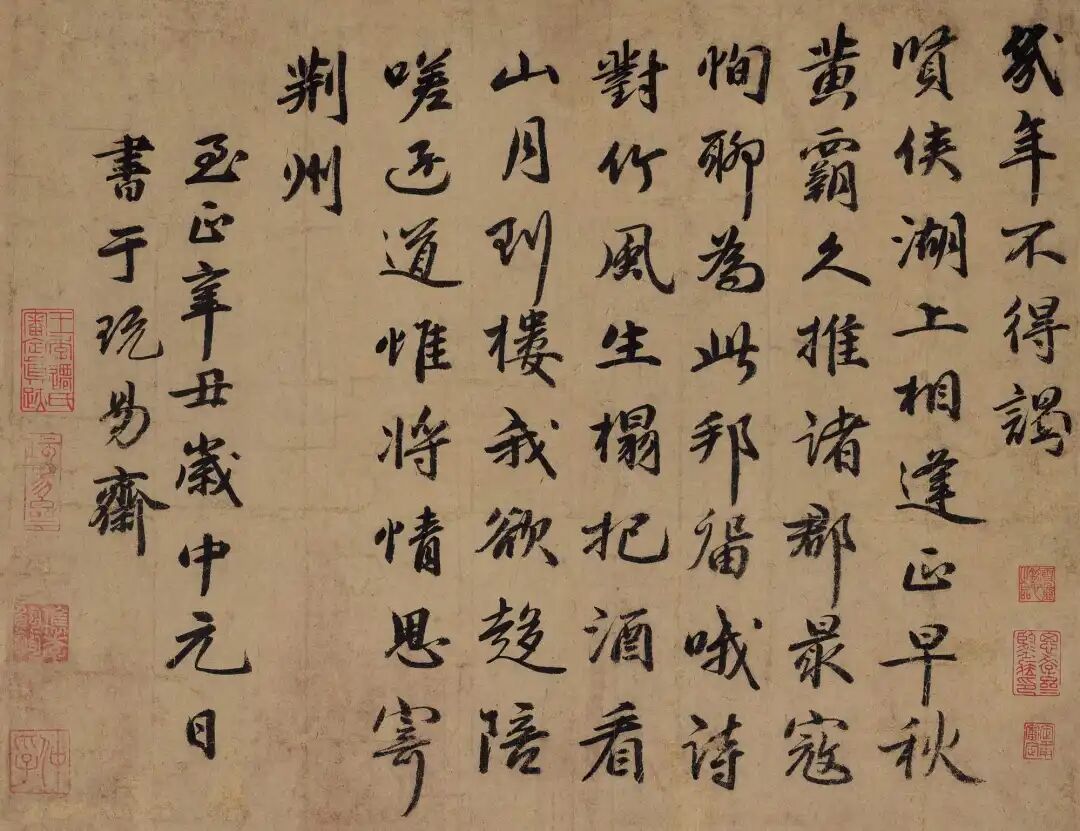 幾年不得謁
賢侯湖上相逢正早秋
黄霸久推諸郡最寇
恂聊為此邦留哦詩
對竹風生榻把酒看
山月到樓我欲趍陪
嗟遠道惟將情思寄
荆州
至正辛丑歲中元日
書于玩易齋
王季遷氏
審定真跡